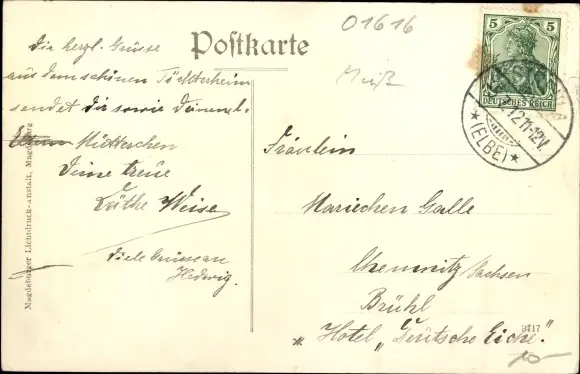 01616
Postkarte
Meiß
5 5
DEUTSCHES REICH
12 11-12V
*(ELBE)*
Die herzl. Grüsse
aus dem schönen Töchterheim
sendet Dir sowie Deinem l.
Eltern Mütterchen
Deine treue
Käthe Weise
Viele
Hedwig.
Fräulein
Mariechen Galle
Chemnitz Sachsen
Brühl
* Hotel „Deutsche Eiche."
3417
10-
Magdeburger Lichtdruck-Anstalt, Magdeburg